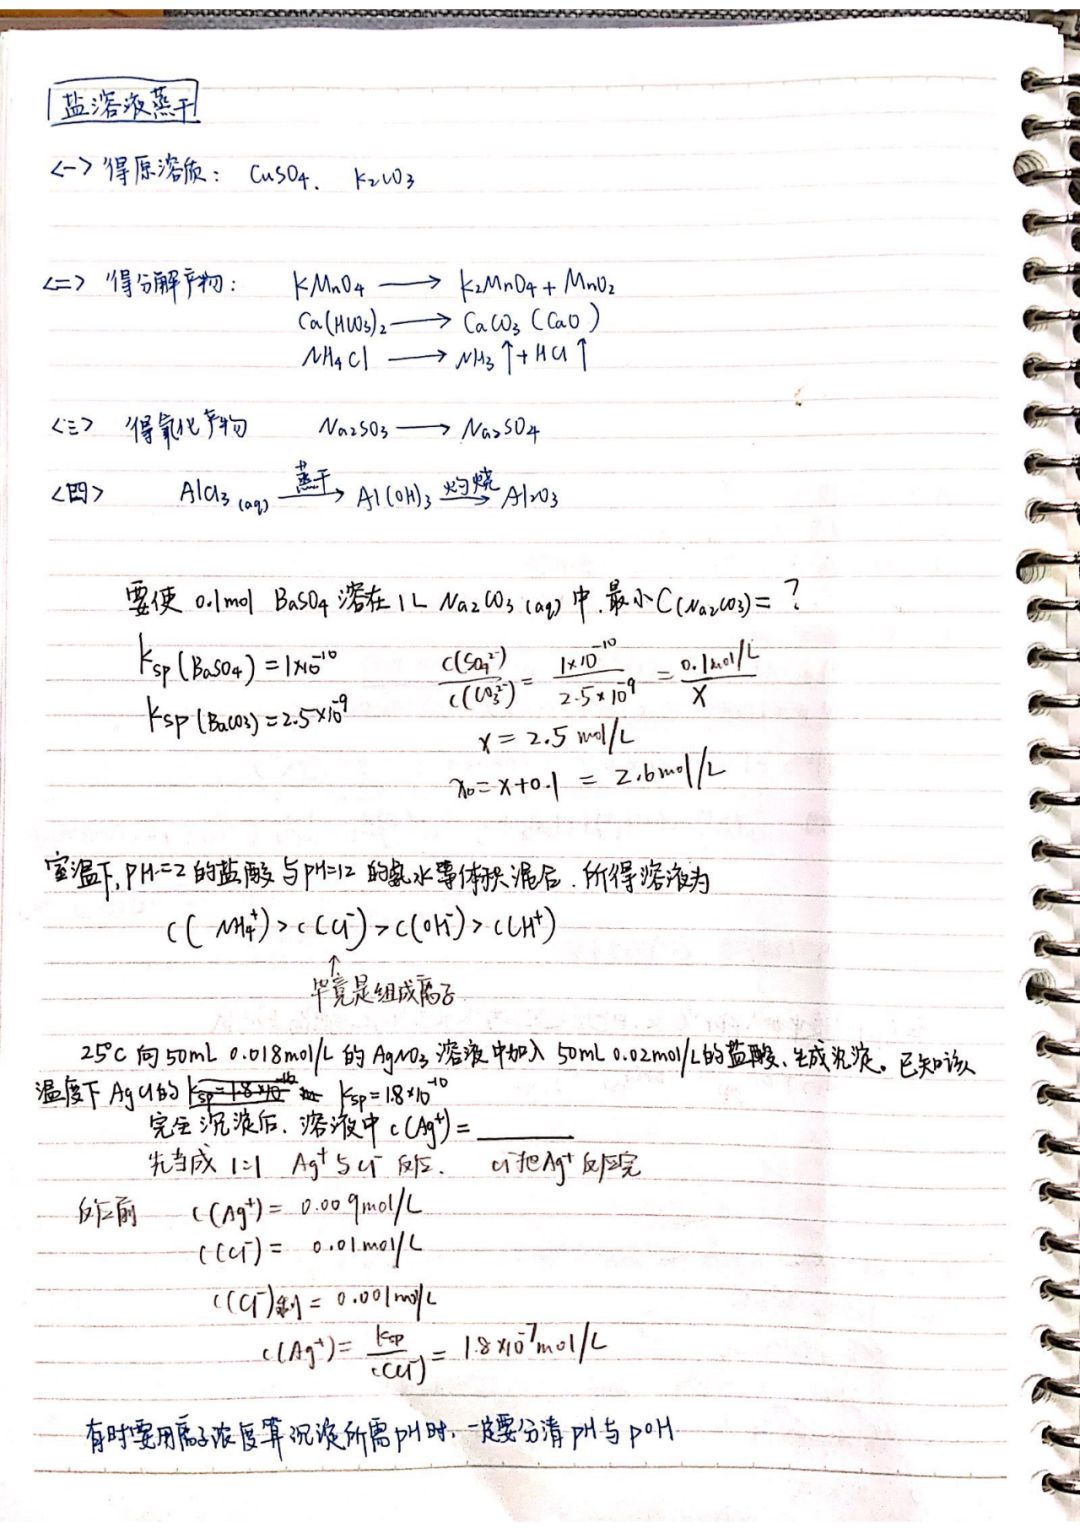 盐溶液蒸干
<一> 得原溶质: CuSO4、 K2CO3
<二> 得分解产物: KMnO4 → K2MnO4 + MnO2
Ca(HCO3)2 → CaCO3 (CaO)
NH4Cl → NH3↑ + HCl↑
<三> 得氧化产物 Na2SO3 → Na2SO4
<四> AlCl3 (aq) 蒸干→ Al(OH)3 灼烧→ Al2O3
要使 0.1mol BaSO4 溶在 1L Na2CO3 (aq) 中,最小C(Na2CO3)= ?
Ksp(BaSO4)=1×10^-10 c(SO4^2-)/c(CO3^2-) = 1×10^-10/2.5×10^-9 = 0.1mol/L/X
Ksp(BaCO3)=2.5×10^-9
x = 2.5 mol/L
x0 = x+0.1 = 2.6mol/L
室温下,PH=2的盐酸与pH=12的氨水等体积混后,所得溶液为
c(NH4+)>c(Cl-)>c(OH-)>c(H+)
↑
毕竟是组成离子
25°C 向50mL 0.018mol/L的AgNO3溶液中加入 50mL 0.02mol/L的盐酸、生成沉淀。已知该
温度下 AgCl的 Ksp=1.8×10^-10 Ksp=1.8×10^-10
完全沉淀后、溶液中 c(Ag+)=
先当成 1:1 Ag+与Cl- 反应. Cl-把Ag+反应完
反应前 c(Ag+)= 0.009mol/L
c(Cl-)= 0.01mol/L
c(Cl-)剩= 0.001mol/L
c(Ag+)= Ksp/c(Cl-) = 1.8×10^-7mol/L
有时要用离子浓度算沉淀所需pH时,一定要分清pH与pOH